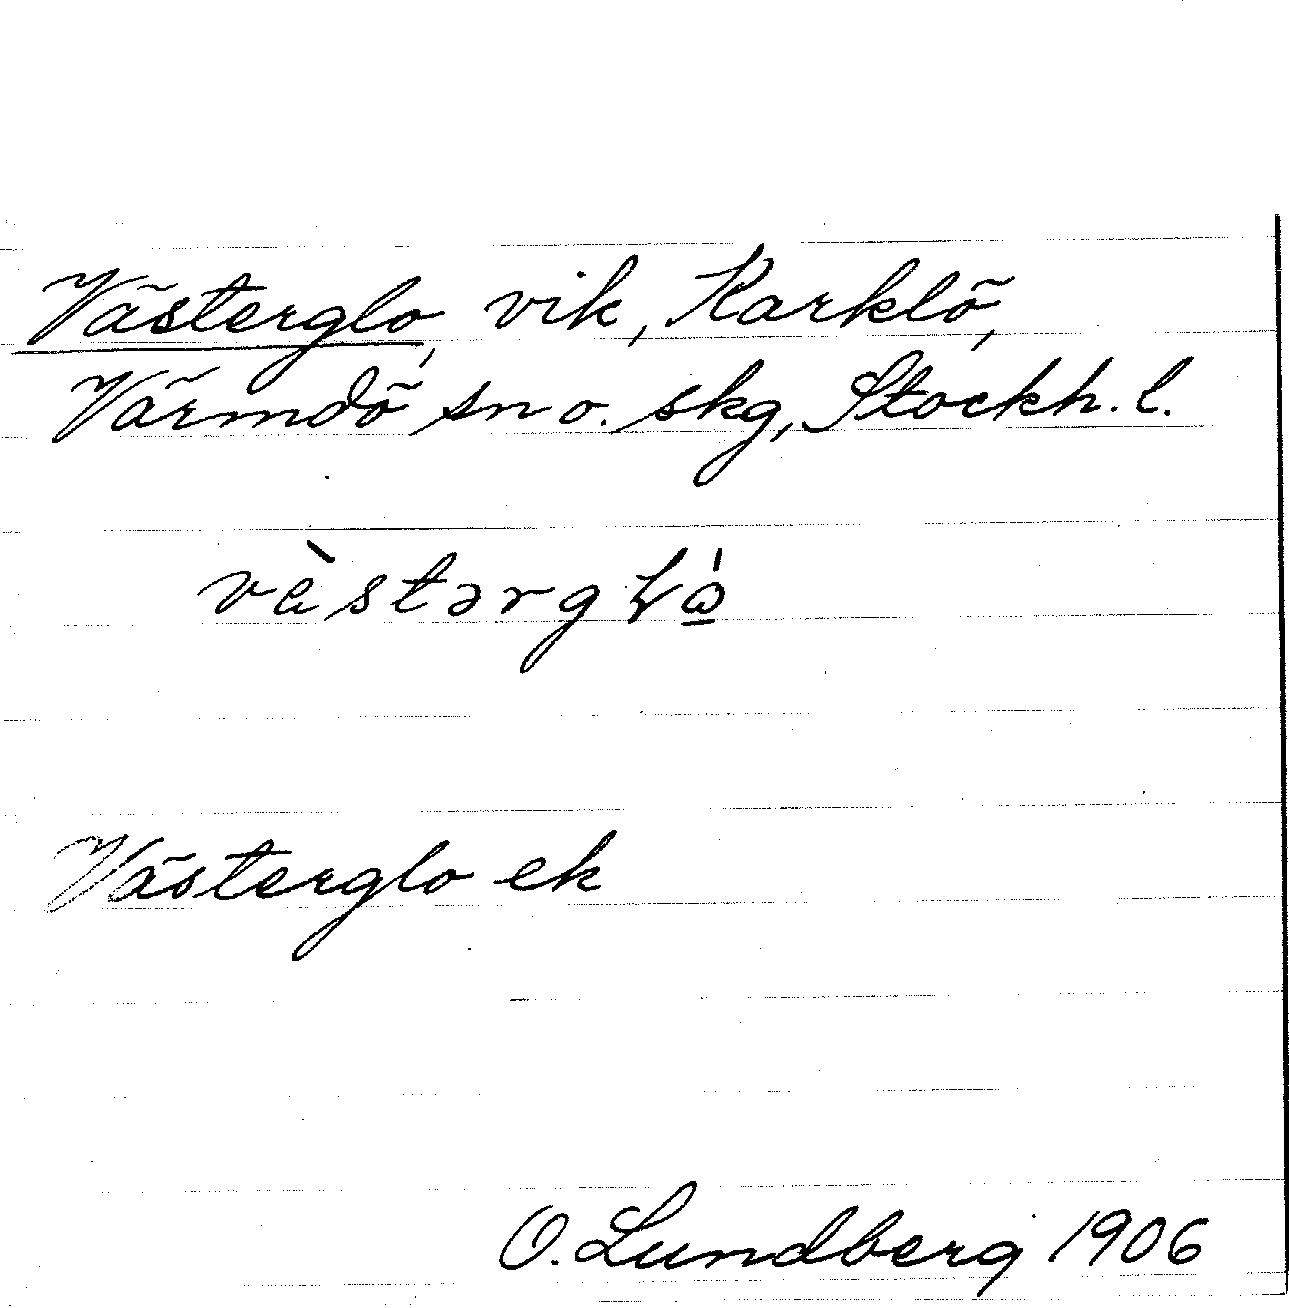 Västerglo, vik, Karklö,
Värmdö sn o. skg, Stockh. l.
vàstərgɫώ̲
Västerglo ek
O. Lundberg 1906